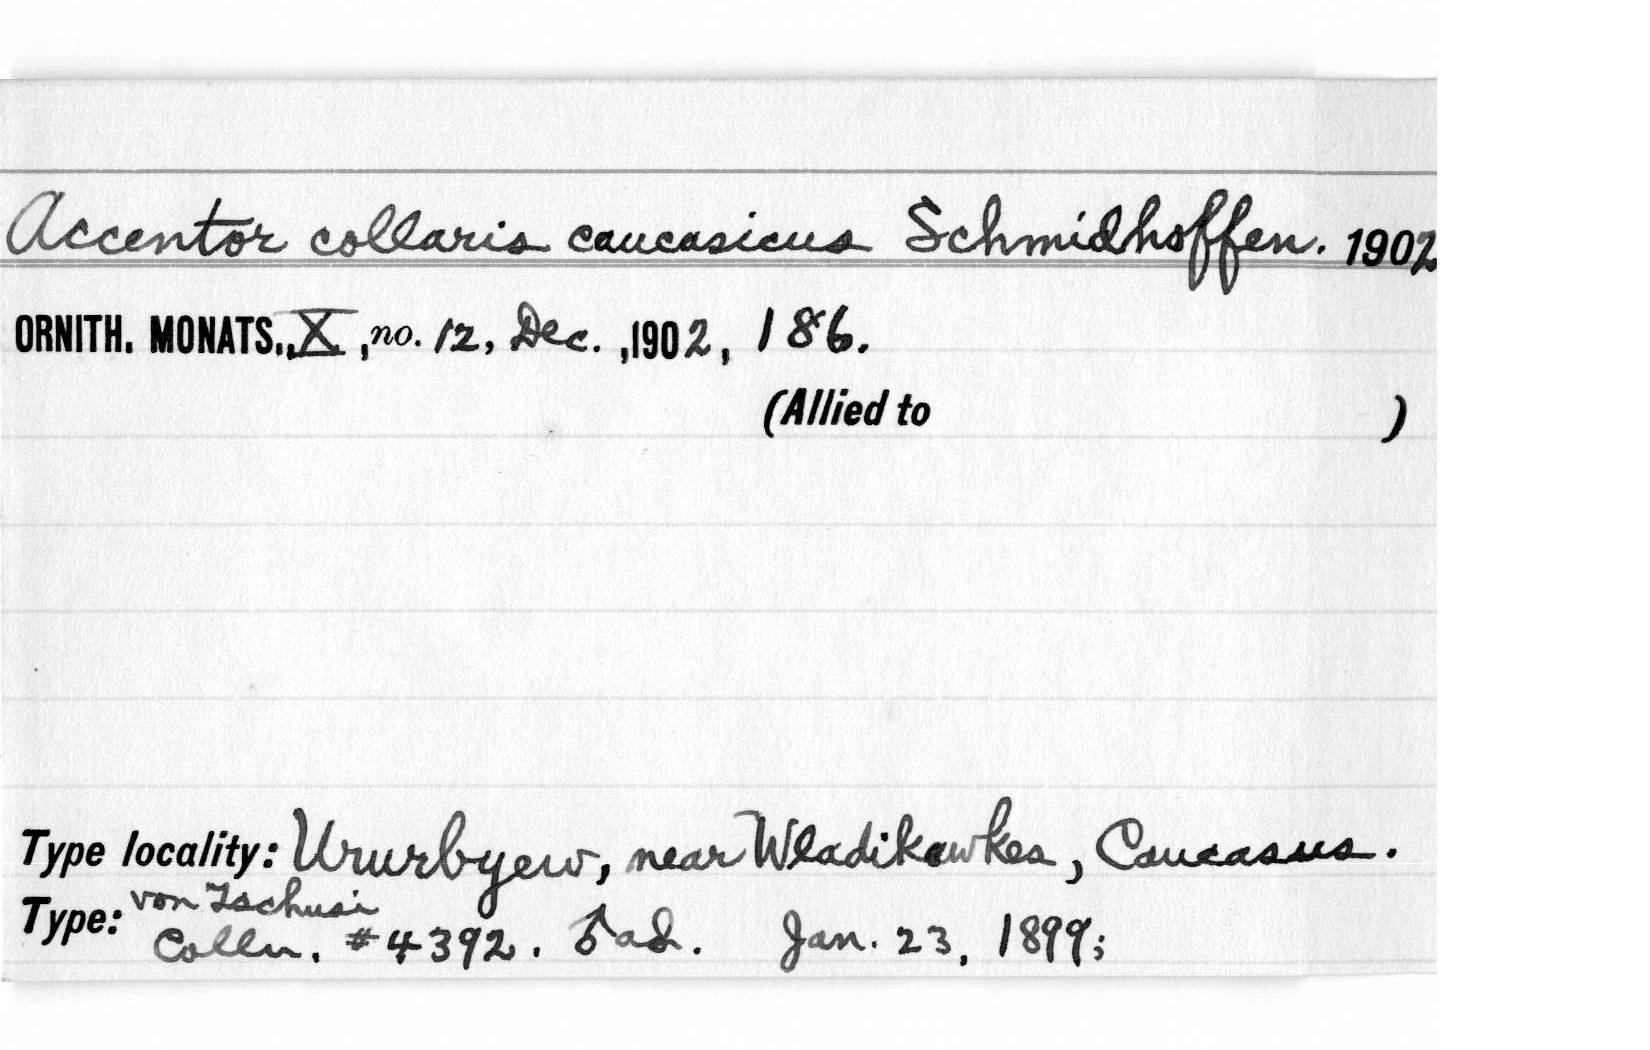 Accentor collaris caucasicus Schmidhoffen. 1902
ORNITH. MONATS., X, no. 12, Dec., 1902, 186.
(Allied to )
Type locality: Ururbyew, near Wladikawkas, Caucasus.
Type: von Tschusi
Colln. #4392. ♂ ad. Jan. 23, 1899;